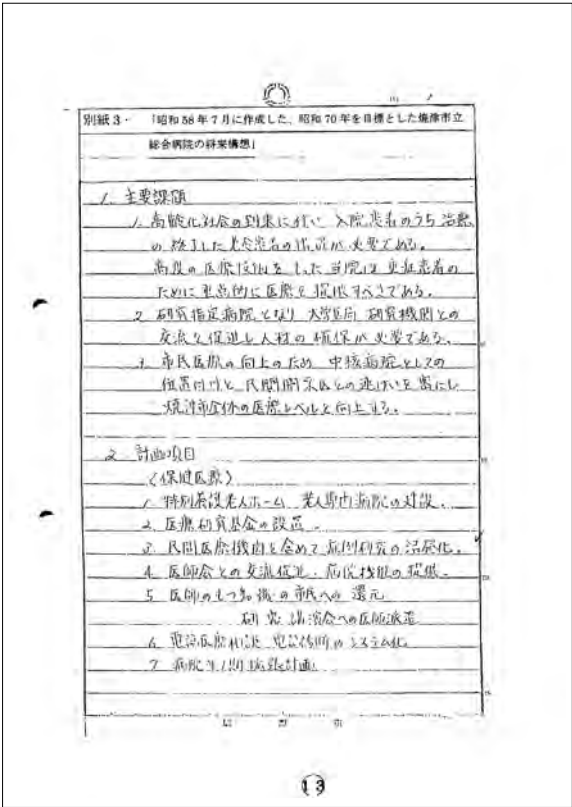 別紙3・ 「昭和58年7月に作成した、昭和70年を目標とした焼津市立
総合病院の将来構想」
1. 主要課題
1. 高齢化社会の到来に伴い 入院患者のうち治療
の終了した老人患者の が必要である。
高度の医療技術を した当院は重症患者の
ために重点的に医療を提供すべきである。
2 研究指定病院となり 大学医局 研究機関との
交流を促進し人材の確保が必要である。
3. 市民医療の向上のため 中核病院としての
位置付けと民間開業医との連けいを密にし
焼津市全体の医療レベルを向上する。
2 計画項目
(保健医療)
1. 特別養護老人ホーム 老人専門病院の 設。
2. 医療研究基金の設置。
3. 民間医療機関を含めて症例研究の活発化。
4. 医師会との交流促進・病院機能の提供。
5 医師のもつ知識の市民への 還元
講演会への医師派遣
6. システム化
7 病院 計画
13